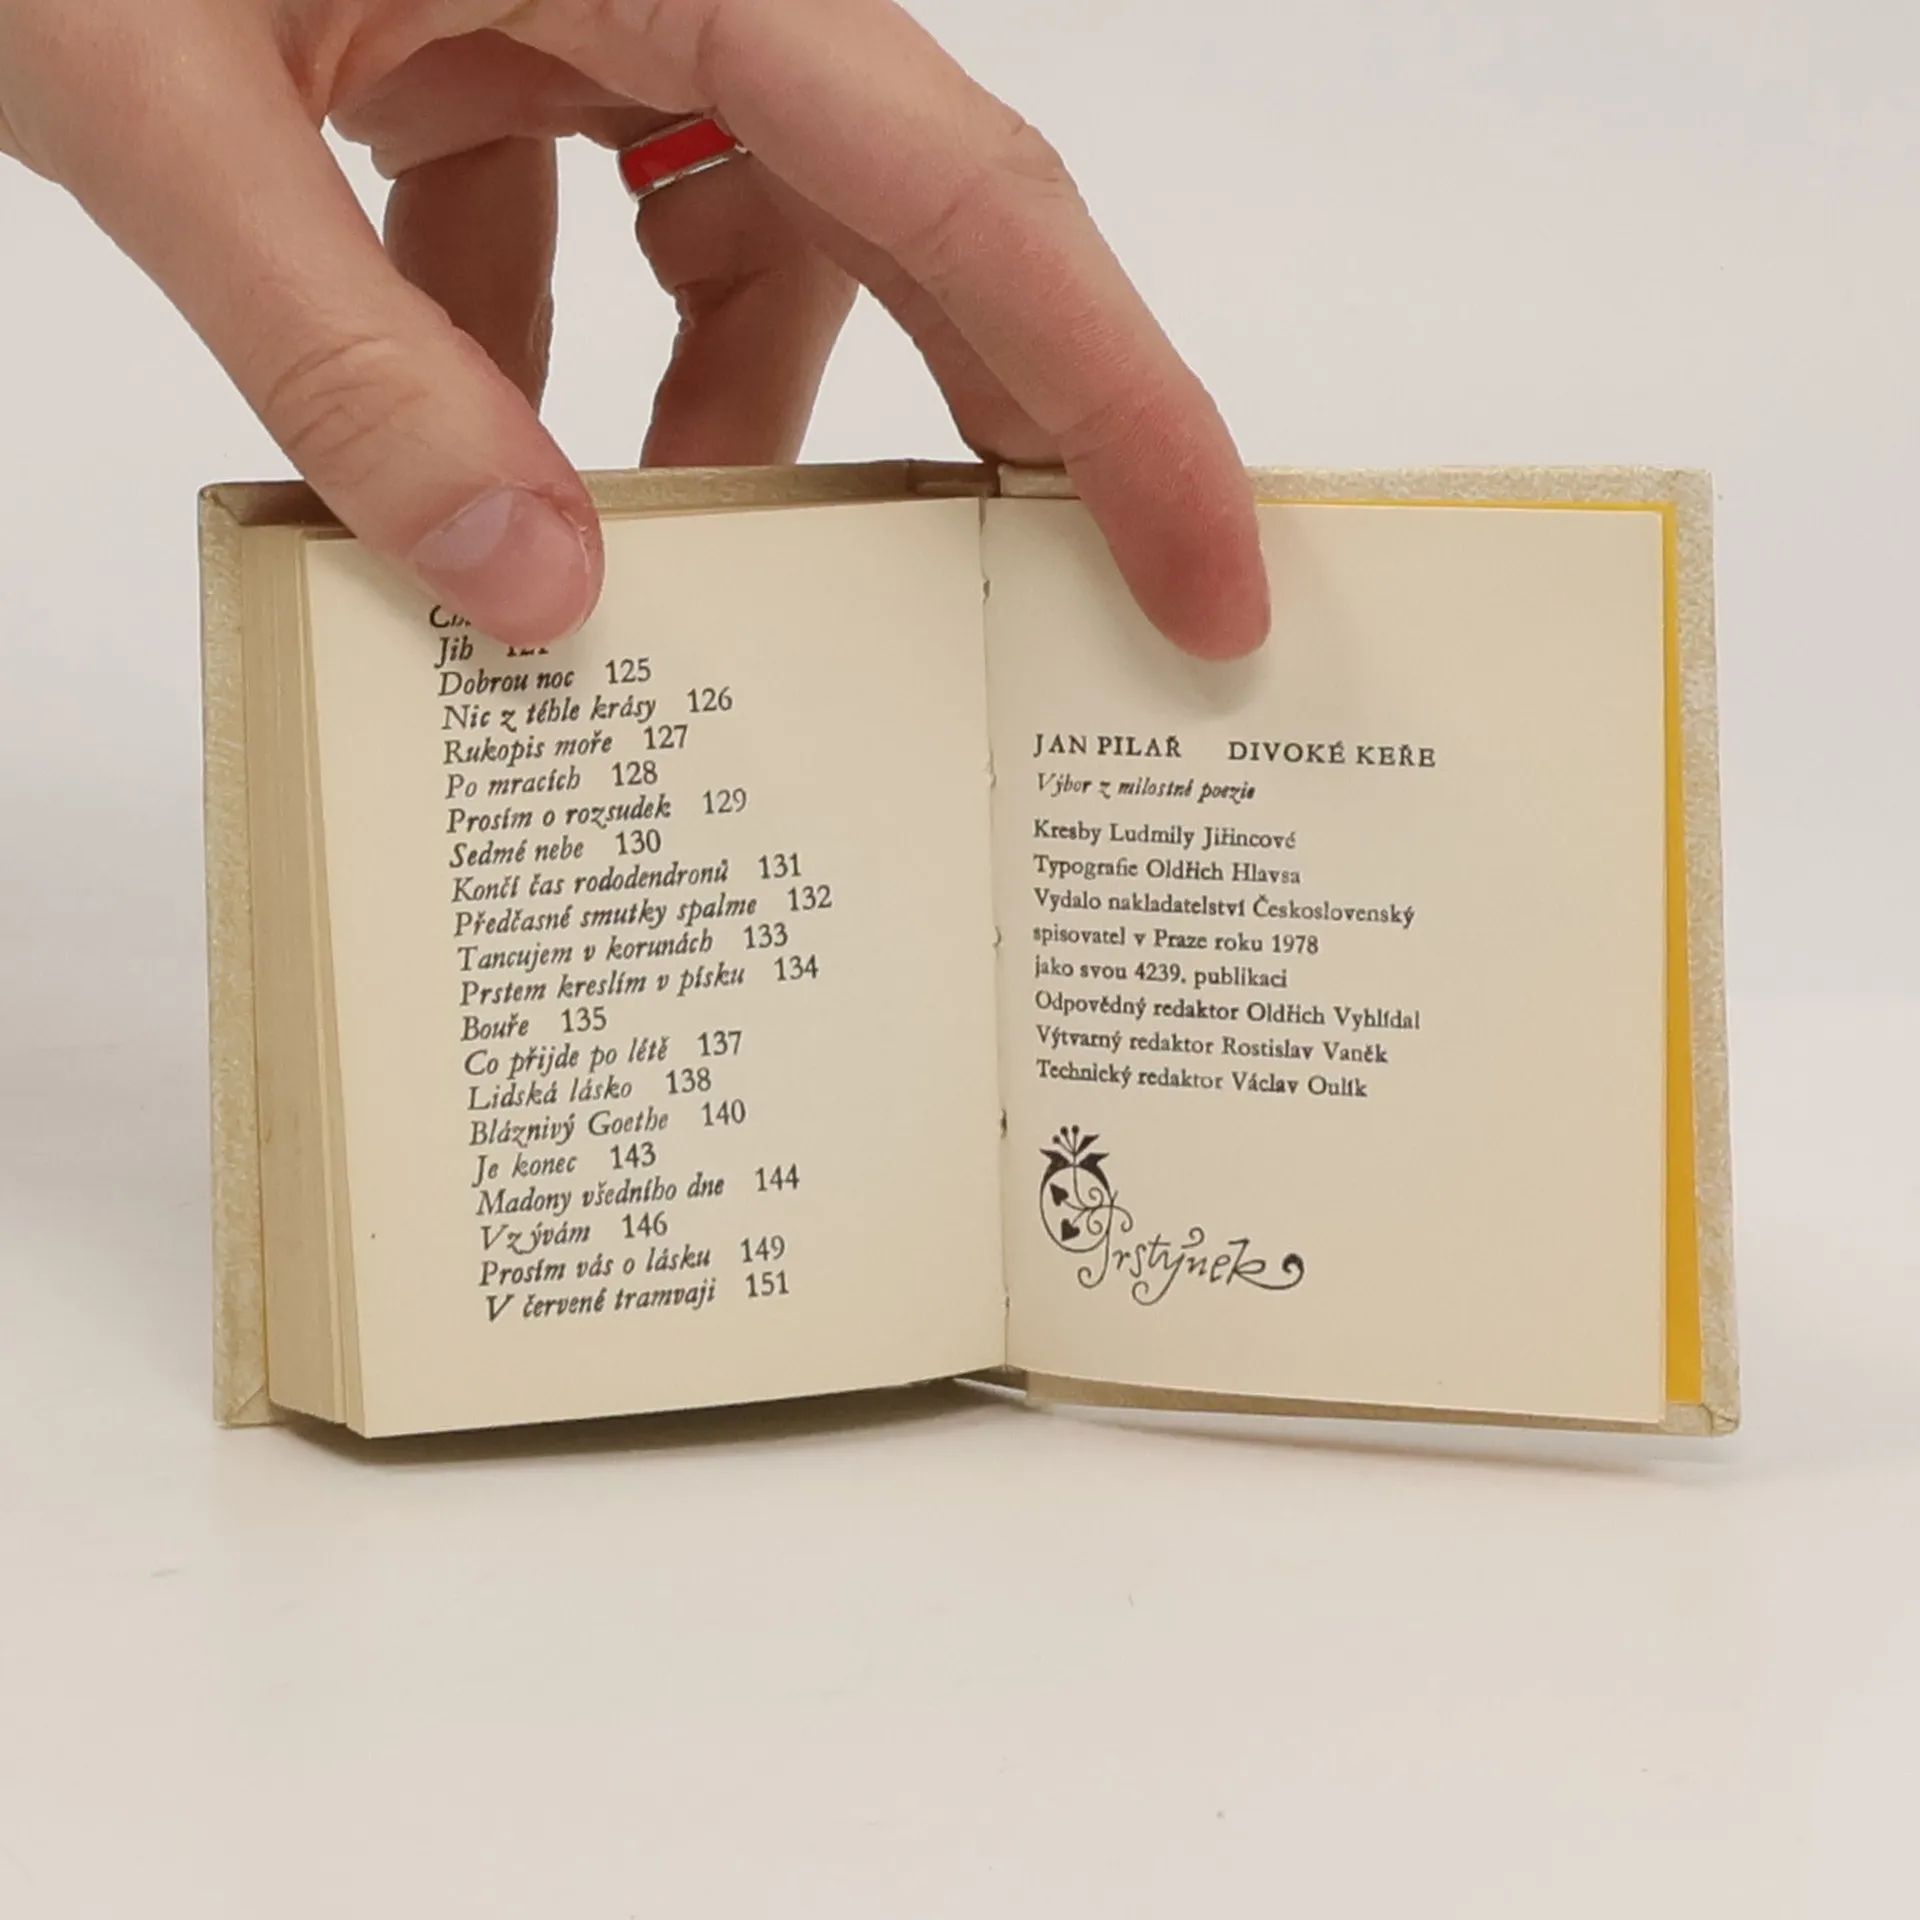 Jih
Dobrou noc 125
Nic z téhle krásy 126
Rukopis moře 127
Po mracích 128
Prosím o rozsudek 129
Sedmé nebe 130
Končí čas rododendronů 131
Předčasné smutky spalme 132
Tancujem v korunách 133
Prstem kreslím v písku 134
Bouře 135
Co přijde po létě 137
Lidská lásko 138
Bláznivý Goethe 140
Je konec 143
Madony všedního dne 144
Vzývám 146
Prosím vás o lásku 149
V červené tramvaji 151
JAN PILAŘ DIVOKÉ KEŘE
Výbor z milostné poezie
Kresby Ludmily Jiřincové
Typografie Oldřich Hlavsa
Vydalo nakladatelství Československý
spisovatel v Praze roku 1978
jako svou 4239. publikaci
Odpovědný redaktor Oldřich Vyhlídal
Výtvarný redaktor Rostislav Vaněk
Technický redaktor Václav Oulík
Prstýnek